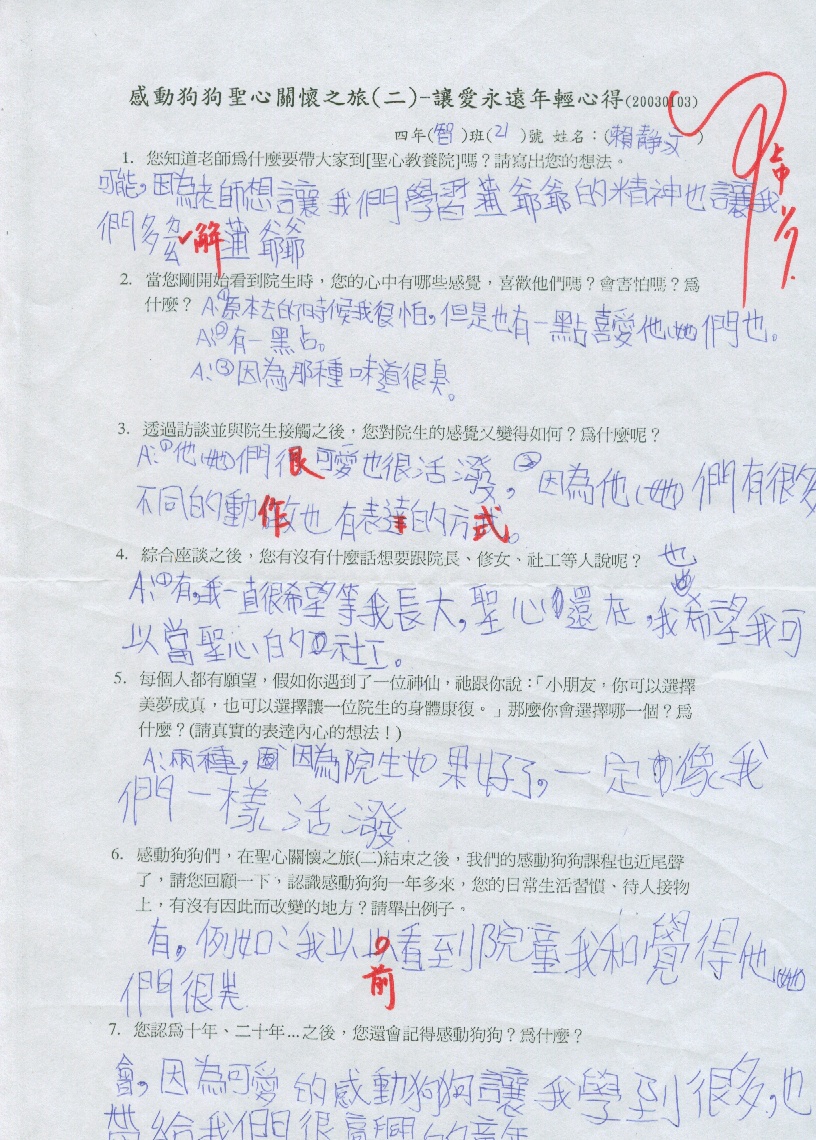 感動狗狗聖心關懷之旅(二)-讓愛永遠年輕心得(20030103)
四年(智)班(21)號 姓名:(賴靜文)
1. 您知道老師爲什麼要帶大家到[聖心教養院]嗎?請寫出您的想法。
可能,因為老師想讓我們學習 爺爺的精神也讓我
們多 解 爺爺
2. 當您剛開始看到院生時,您的心中有哪些感覺,喜歡他們嗎?會害怕嗎?爲
什麼? A:①原本去的時候我很怕,但是也有一點喜愛他(她)們也。
A:②有一點。
A:③因為那種味道很臭。
3. 透過訪談並與院生接觸之後,您對院生的感覺又變得如何?爲什麼呢?
A:①他(她)們很可愛也很活潑,②因為他(她)們有很多
不同的動作也有表達的方式。
4. 綜合座談之後,您有沒有什麼話想要跟院長、修女、社工等人說呢? 也
A:①有,我一直很希望等我長大,聖心還在,我希望我可
以當聖心的社工。
5. 每個人都有願望,假如你遇到了一位神仙,祂跟你說:「小朋友,你可以選擇
美夢成真,也可以選擇讓一位院生的身體康復。」那麼你會選擇哪一個?爲
什麼?(請真實的表達內心的想法!)
A:兩種,因為院生如果好了,一定像我
們一樣活潑
6. 感動狗狗們,在聖心關懷之旅(二)結束之後,我們的感動狗狗課程也近尾聲
了,請您回顧一下,認識感動狗狗一年多來,您的日常生活習慣、待人接物
上,有沒有因此而改變的地方?請舉出例子。
有,例如:我以前看到院童我和覺得他(她)
們很
7. 您認爲十年、二十年...之後,您還會記得感動狗狗?爲什麼?
會,因為可愛的感動狗狗讓我學到很多,也
帶給我們很高興的童年